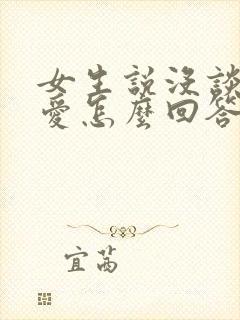 女生說沒談
愛怎麼回答
宜茜